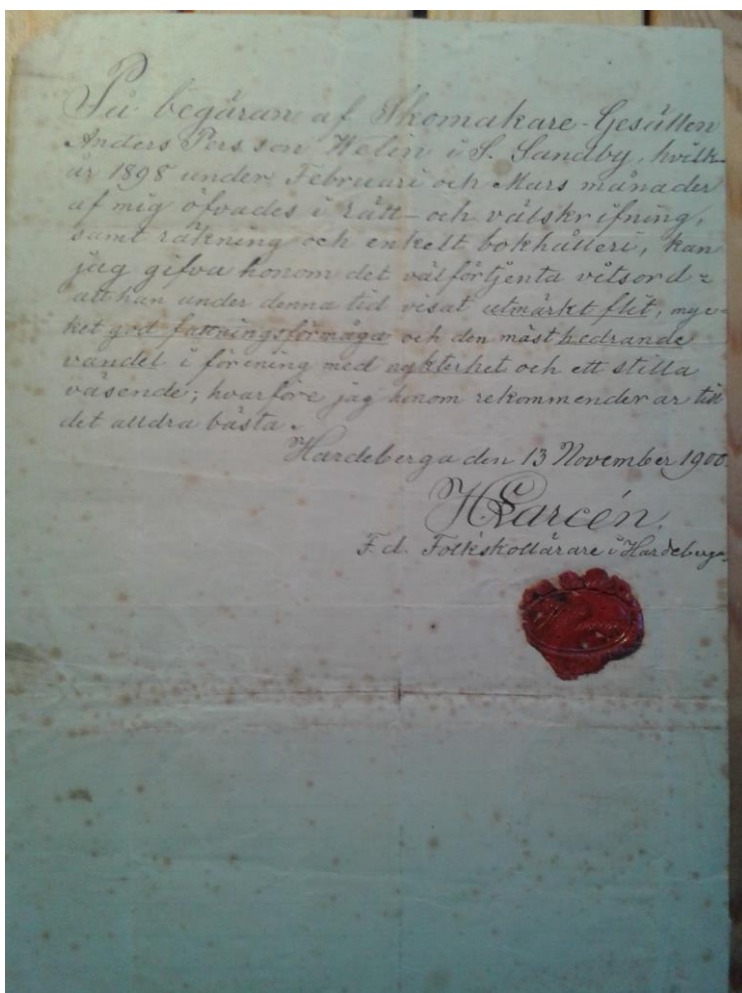 På begäran af Skomakare-Gesällen
Anders Persson Welin i S. Sandby, hvilk-
år 1898 under Februari och Mars månader
af mig öfvades i rätt- och välskrifning,
samt räkning och enkelt bokhålleri, kan
jag gifva honom det välförtjenta vitsord-
att han under denna tid visat utmärkt flit, myc-
ket god fattningsförmåga och den mäst hedrande
vandel i förening med nykterhet och ett stilla
väsende; hvarföre jag honom rekommenderar till
det alldra bästa.
Hardeberga den 13 November 1900.
H Larcén.
F.d. Folkskollärare i Hardeberga